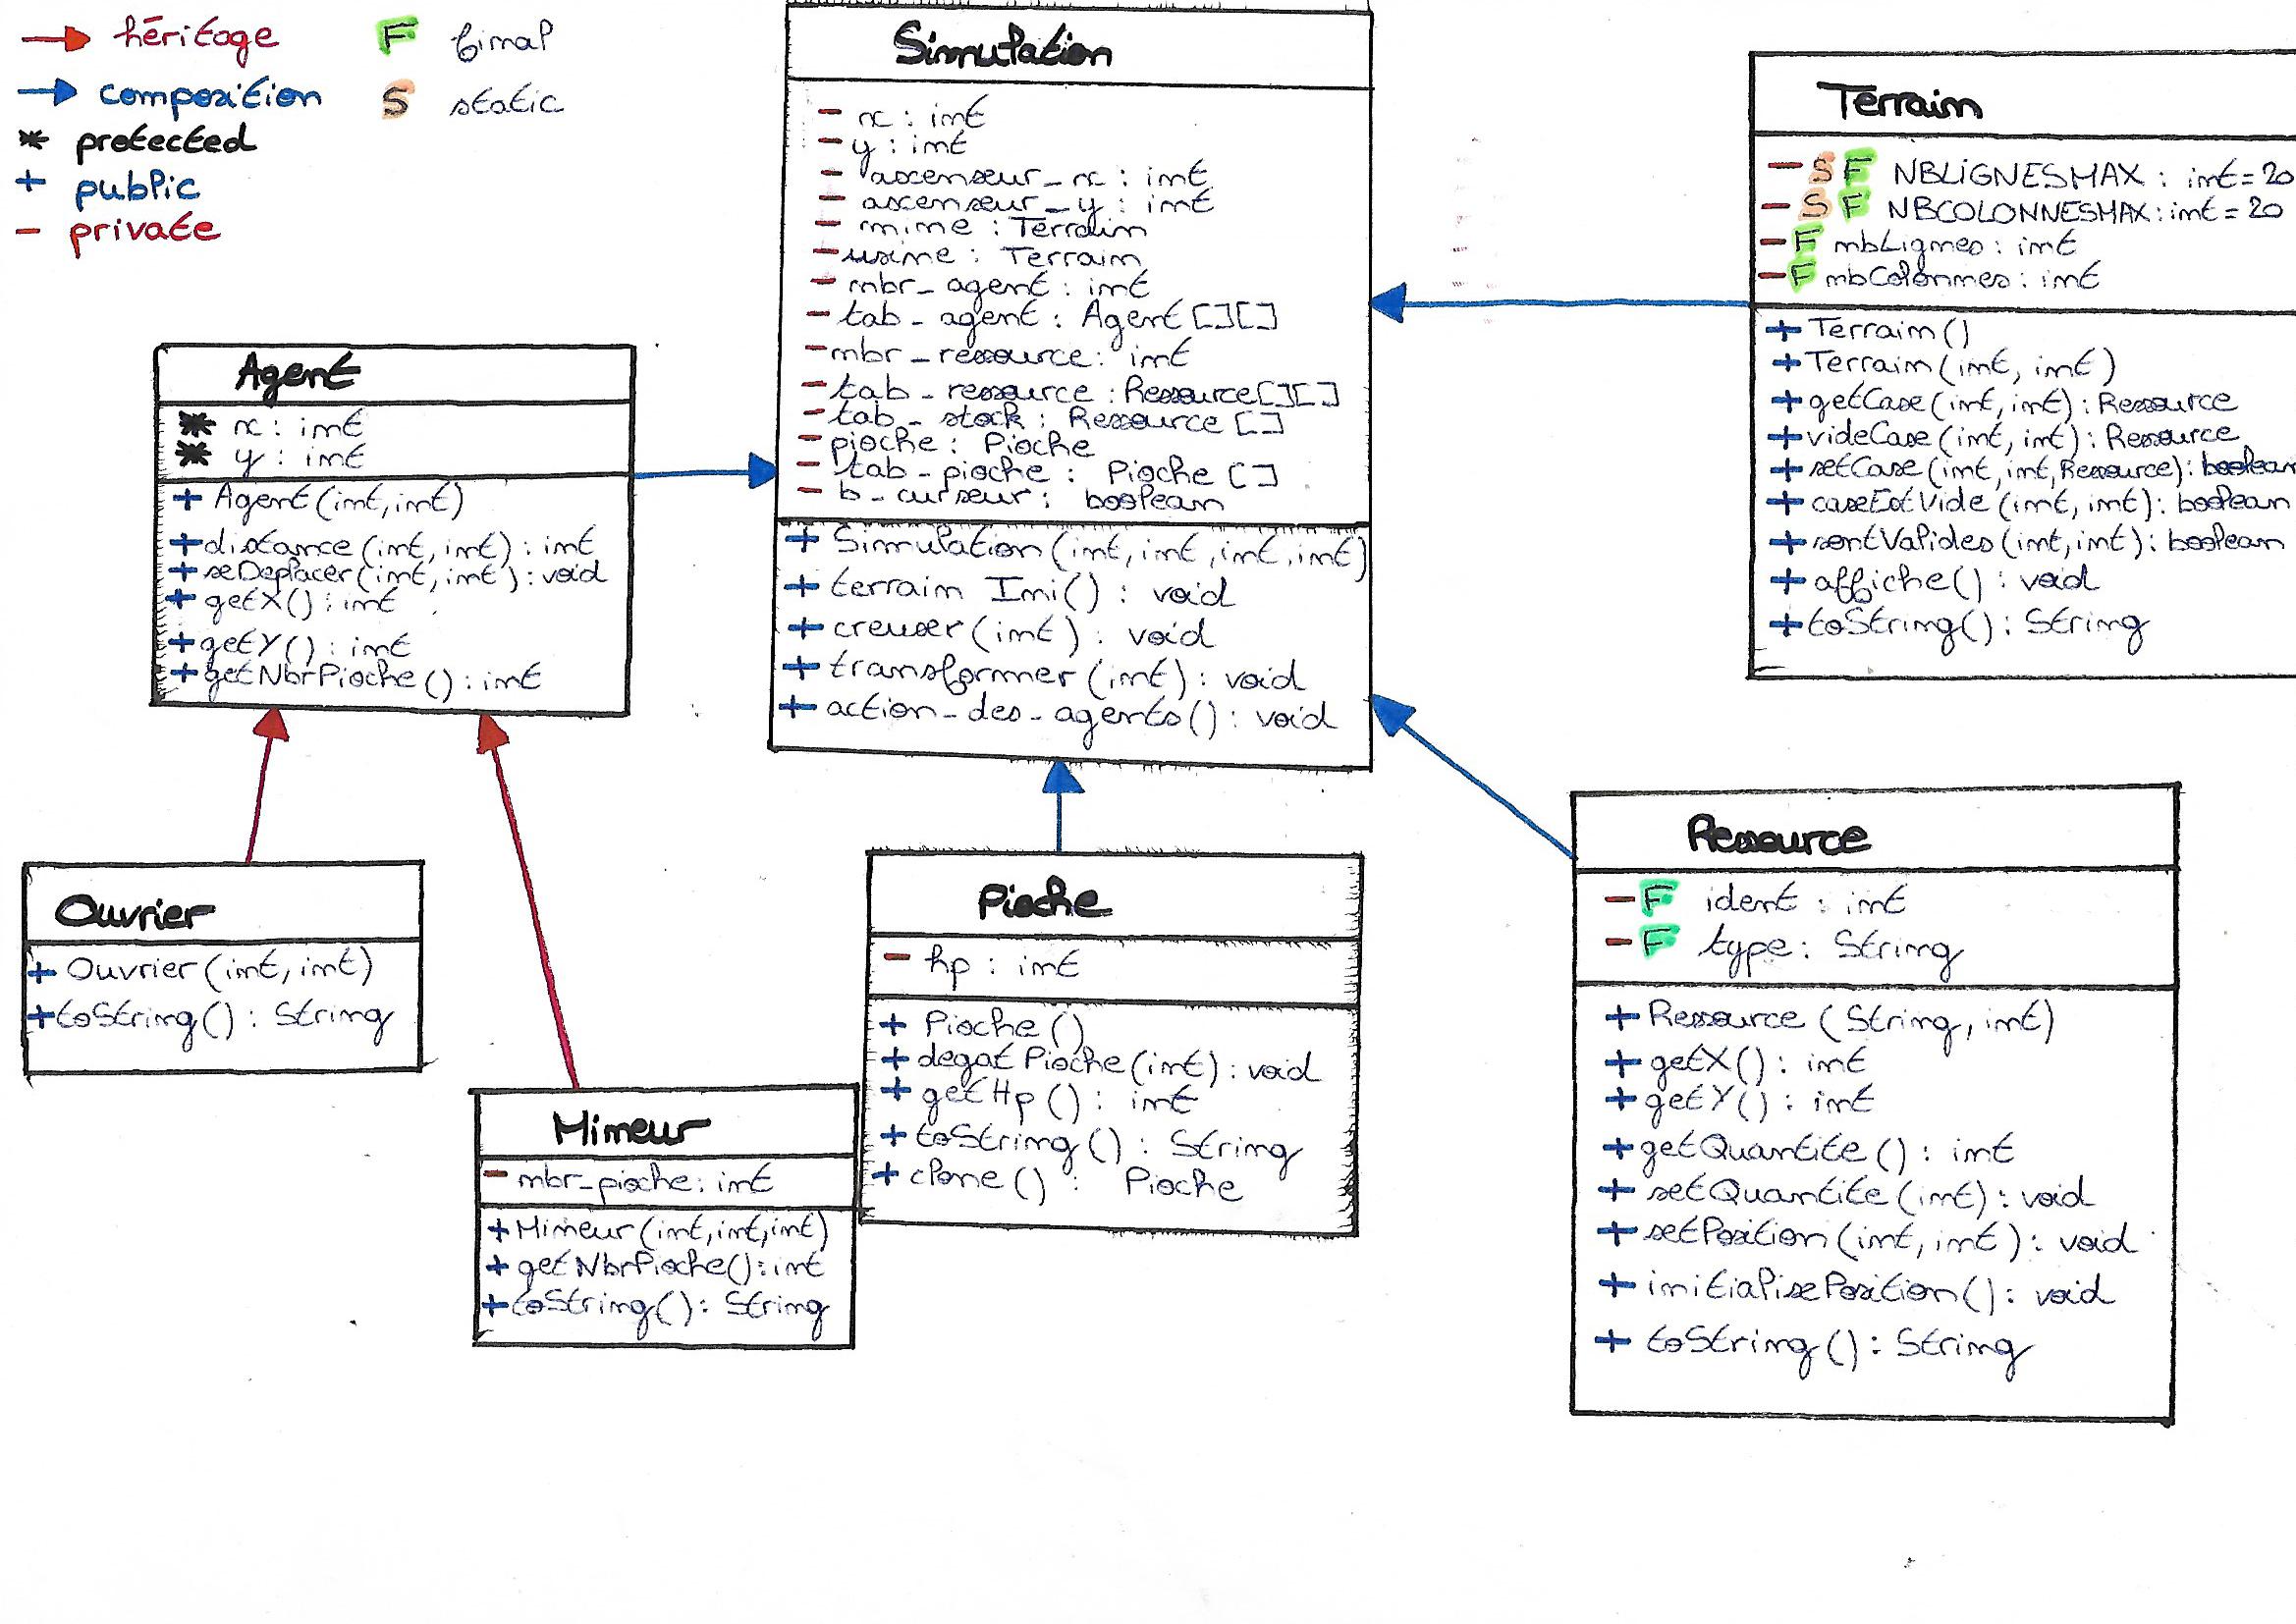 → héritage
→ composition
* protected
+ public
- private
F final
S static
Simulation
- x : int
- y : int
- ascenseur_x : int
- ascenseur_y : int
- mine : Terrain
- usine : Terrain
- nbr_agent : int
- tab_agent : Agent[][]
- nbr_ressource : int
- tab_ressource : Ressource[][]
- tab_stock : Ressource[]
- pioche : Pioche
- tab_pioche : Pioche[]
- b_curseur : boolean
+ Simulation(int, int, int, int)
+ terrain Ini() : void
+ creuser(int) : void
+ transformer(int) : void
+ action_des_agents() : void
Terrain
- S F NBLIGNESMAX : int = 20
- S F NBCOLONNESMAX : int = 20
- F nbLignes : int
- F nbColonnes : int
+ Terrain()
+ Terrain(int, int)
+ getCase(int, int) : Ressource
+ videCase(int, int) : Ressource
+ setCase(int, int, Ressource) : boolean
+ caseEstVide(int, int) : boolean
+ sontValides(int, int) : boolean
+ affiche() : void
+ toString() : String
Agent
* x : int
* y : int
+ Agent(int, int)
+ distance(int, int) : int
+ seDeplacer(int, int) : void
+ getX() : int
+ getY() : int
+ getNbrPioche() : int
Ouvrier
+ Ouvrier(int, int)
+ toString() : String
Mineur
- nbr_pioche : int
+ Mineur(int, int, int)
+ getNbrPioche() : int
+ toString() : String
Pioche
- hp : int
+ Pioche()
+ degat Pioche(int) : void
+ getHp() : int
+ toString() : String
+ clone() : Pioche
Ressource
- F ident : int
- F type : String
+ Ressource(String, int)
+ getX() : int
+ getY() : int
+ getQuantite() : int
+ setQuantite(int) : void
+ setPosition(int, int) : void
+ initialisePosition() : void
+ toString() : String